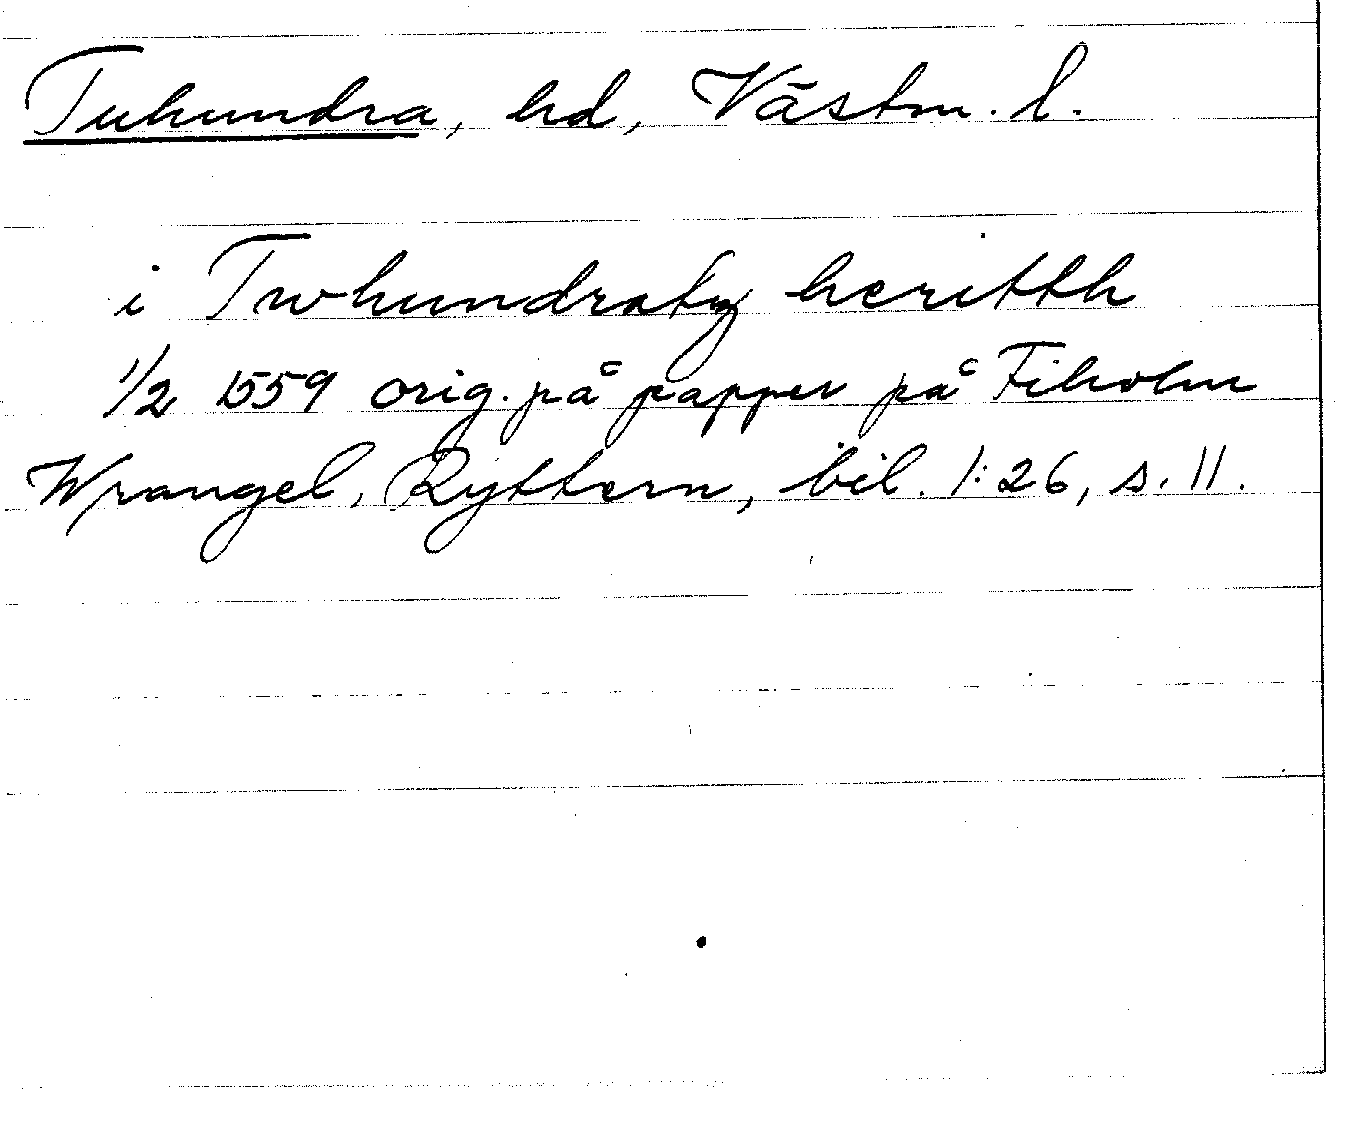 Tuhundra, hd, Västm. l.
i Twhundratz heritth
1/2 1559 orig. på papper på Fiholm
Wrangel, Ryttern, bil. 1:26, s. 11.